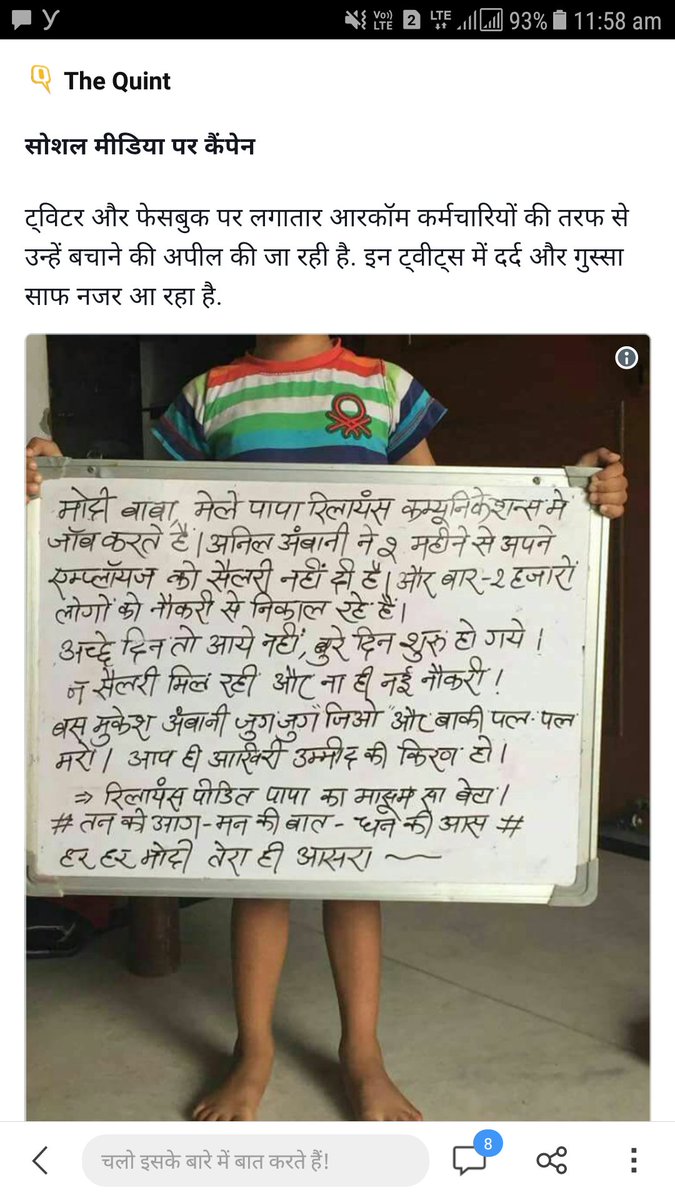 Vo)) LTE 2 LTE 93% 11:58 am
The Quint
सोशल मीडिया पर कैंपेन
ट्विटर और फेसबुक पर लगातार आरकॉम कर्मचारियों की तरफ से
उन्हें बचाने की अपील की जा रही है. इन ट्वीट्स में दर्द और गुस्सा
साफ नजर आ रहा है.
मोदी बाबा, मेले पापा रिलायंस कम्यूनिकेशन्स मे
जॉब करते है। अनिल अंबानी ने २ महीने से अपने
एम्प्लॉयज को सैलरी नहीं दी है। और बार-२ हजारों
लोगों को नौकरी से निकाल रहे हैं।
अच्छे दिन तो आये नहीं, बुरे दिन शुरु हो गये।
न सैलरी मिल रही और ना ही नई नौकरी!
बस मुकेश अंबानी जुग जुग जिओ और बाकी पल-पल
मरो। आप ही आखिरी उम्मीद की किरण हो।
⇒ रिलायंस पीडित पापा का मासूम सा बेटा।
# तन की आग - मन की बात - धन की आस #
हर हर मोदी तेरा ही आसरा ~
चलो इसके बारे में बात करते हैं!
8